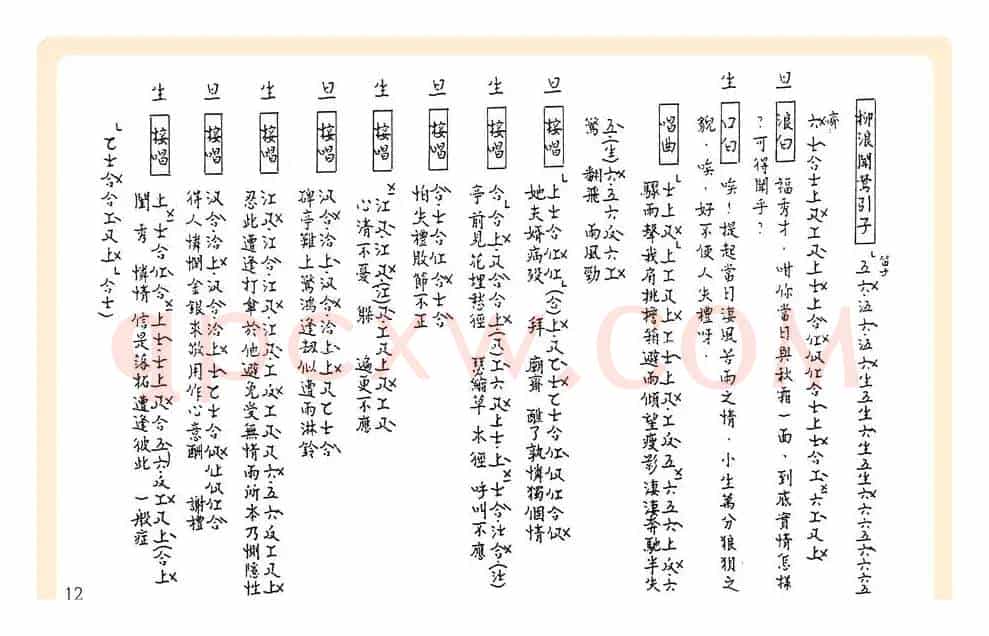 柳浪聞鶯引子
笛子
五六伍六伍六六生五生六生五生六六六五六六六五
齊
六士合士上尺工尺上士上合仜伬仜合士上士合工六工尺上
旦 浪白 福秀才,咁你當日與秋霜一面,到底實情怎樣
?可得聞乎?
生 口白 唉!提起當日淒風苦雨之情,小生萬分狼狽之
貌,唉,好不便人失禮呀.
唱曲
士上尺上工尺上工士上尺工反五六五六上反六
驟雨聲我肩挑擔稍避雨傾望瘦影淒淒奔馳半失
五(生)六五六反六工
驚 翻飛 雨風勁
旦 接唱
上士合仜(合)上尺乙士乙士合仜伬仜合伬
她夫婿病歿 拜 廟齋 醮了孰憐獨個情
生 接唱
合合上尺合合合士(尺)工六尺上士上士合注合(注)
亭前見花埋愁徑 琴縮草 木徑 呼叫不應
旦 接唱
合合士合仜合士合
怕失禮敗節不正
生 接唱
江尺江尺(江)尺工尺上尺工尺
心清不憂 躲 遙更不應
旦 接唱
汎合洽上汎合洽上上尺乙士合
碑亭難上驚鴻逢劫似遭雨淋鈴
生 接唱
江尺江合江尺江尺工反工尺尺六五六反工尺上
忍此遭逢打傘於他避免受無情雨所本乃惻隱性
旦 接唱
汎合洽上汎合洽上士乙士合伬仩伬仜合
得人憐憫金銀來敬用作心意酬 謝禮
生 接唱
上士合仜合上士士上尺合五六反工尺上(合上
閨秀 憐情信是落拓遭逢彼此 一般症
乙士合合工尺上合士)
12
qpcxw.com